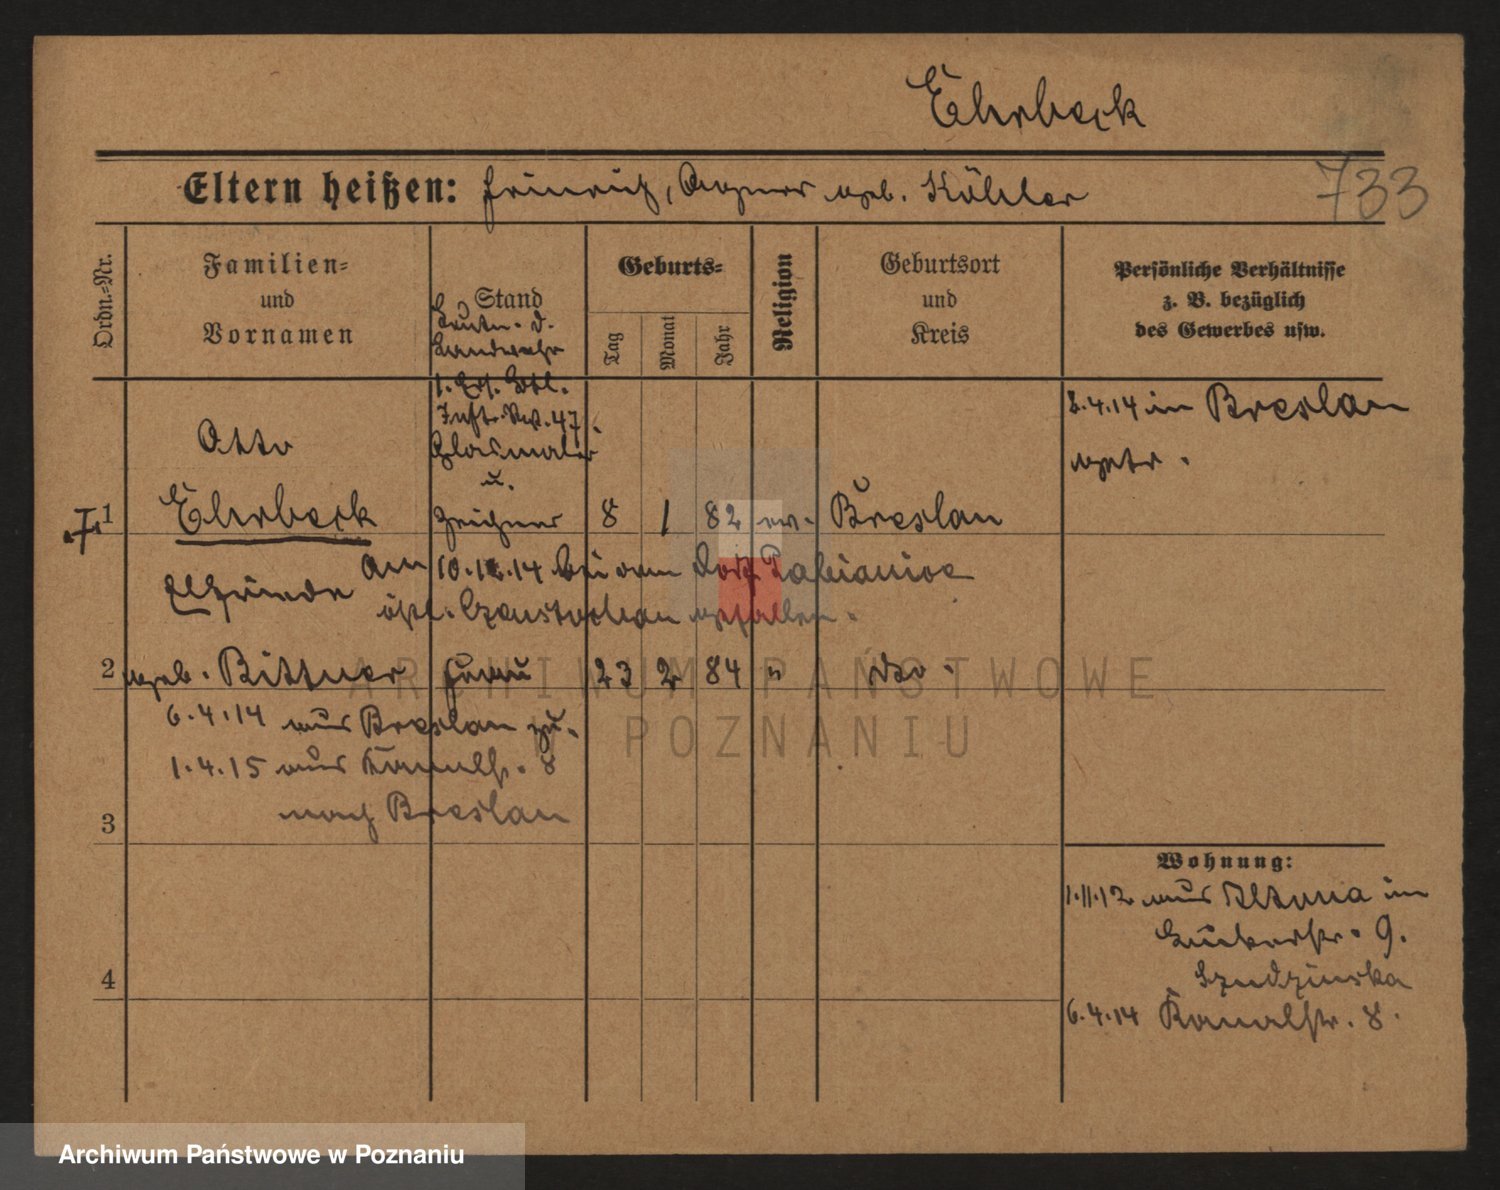 Ehrbeck
Eltern heißen: Heinrich, Agnes geb. Köhler
733
Ordn.-Nr.
Familien-
und
Vornamen
Stand
Geburts-
Tag
Monat
Jahr
Religion
Geburtsort
und
Kreis
Persönliche Verhältnisse
z. B. bezüglich
des Gewerbes usw.
Leutn. d.
Landwehr
1. Ers. Batl.
Inft. Rg. 47.
Glasmaler
u.
Zeichner
Otto
1 Ehrbeck 8 1 82 ev. Breslau
8.4.14 in Breslau
getr.
Am 10.12.14 bei dem Dorf Pabianice
östl. Czenstochau gefallen.
Elfriede
2 geb. Bittner Frau 23 2 84 " do.
6.4.14 aus Breslau zu.
1.4.15 aus Kanalstr. 8
nach Breslau
3
4
Wohnung:
1.11.12 aus Altona in
9.
6.4.14 Kanalstr. 8.
ARCHIWUM PAŃSTWOWE
POZNANIU
Archiwum Państwowe w Poznaniu